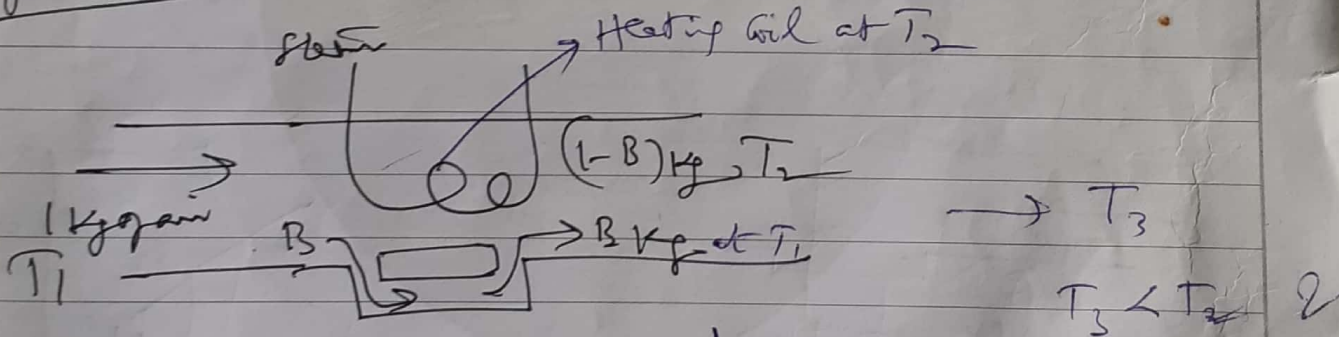 Steam
Heating Coil at T2
(1-B) Kg, T2
1 Kg of air
T1
B
B Kg at T1
T3
T3 < T2